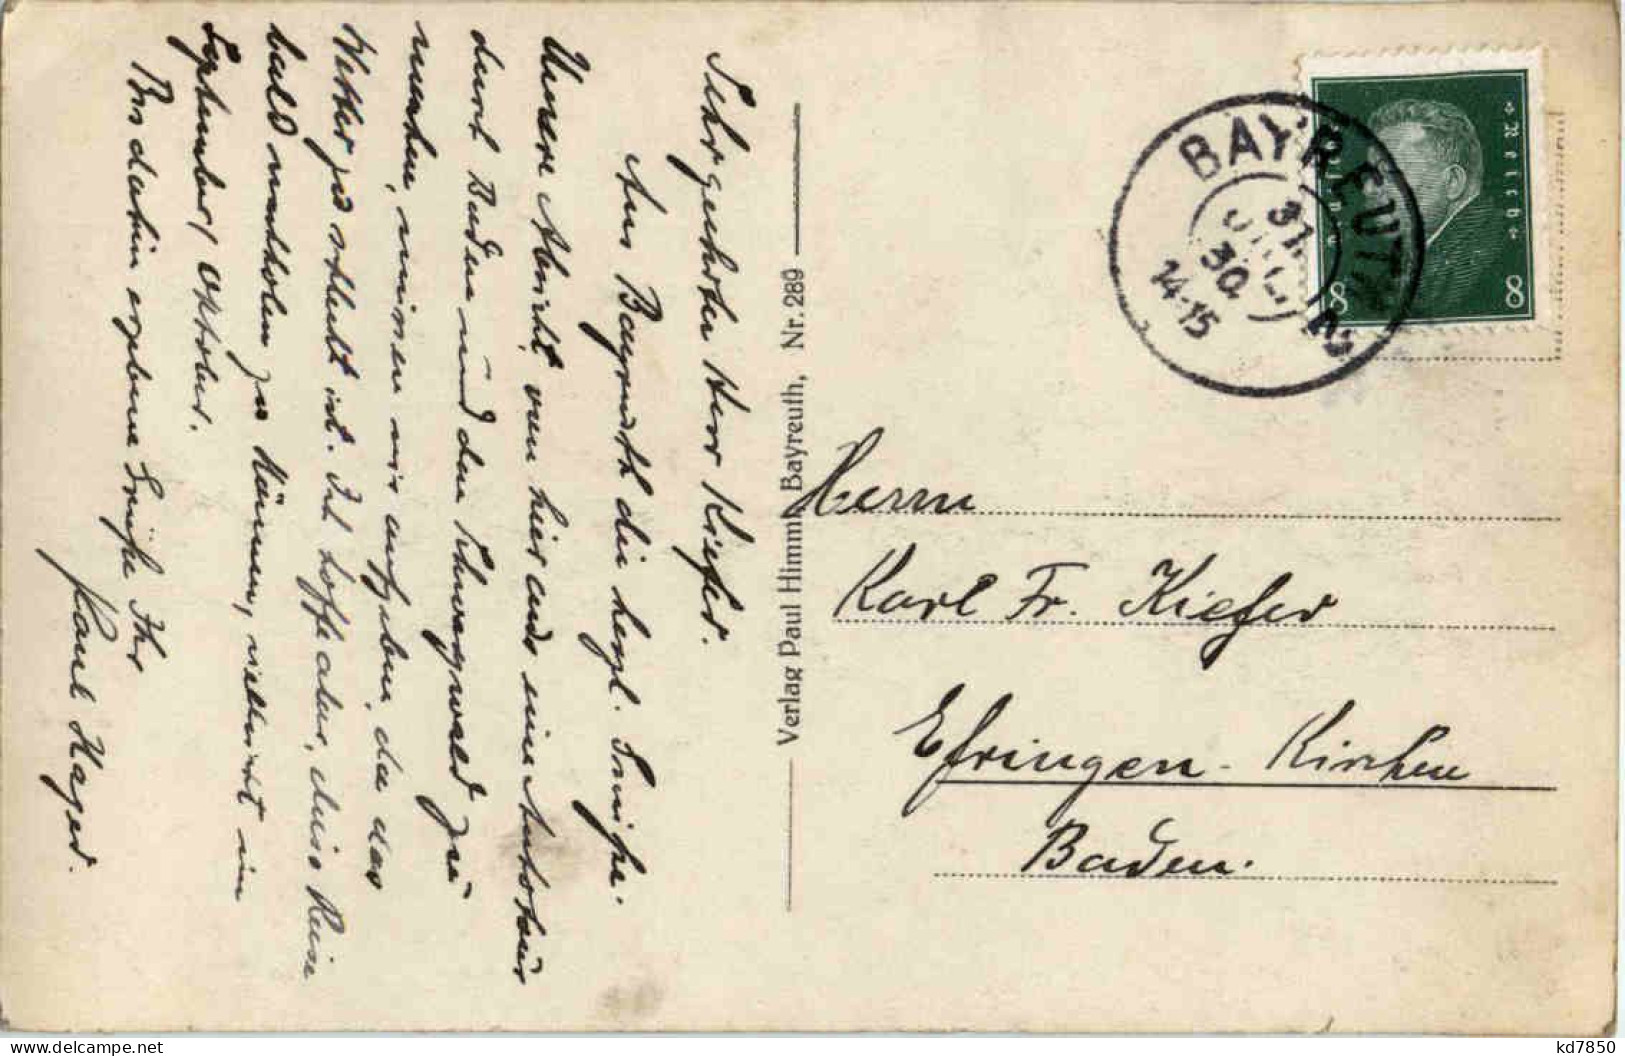 Sehr geehrter Herr Kiefer.
Aus Bayreuth die herzl. Grüsse.
Unsere Absicht, von hier aus eine Autotour
durch Baden und den Schwarzwald zu
machen, müssen wir aufgeben, da das
Wetter zu schlecht ist. Ich hoffe aber, diese Reise
bald nachholen zu können, vielleicht im
September, Oktober.
Bis dahin ergebene Grüsse Ihr
Karl Hager.
Verlag Paul Himml Bayreuth, Nr. 289
BAYREUTH
31.
JULI
30.
14-15
Deutsches
Reich
8 8
Herrn
Karl Fr. Kiefer
Efringen-Kirchen
Baden.
kd7850